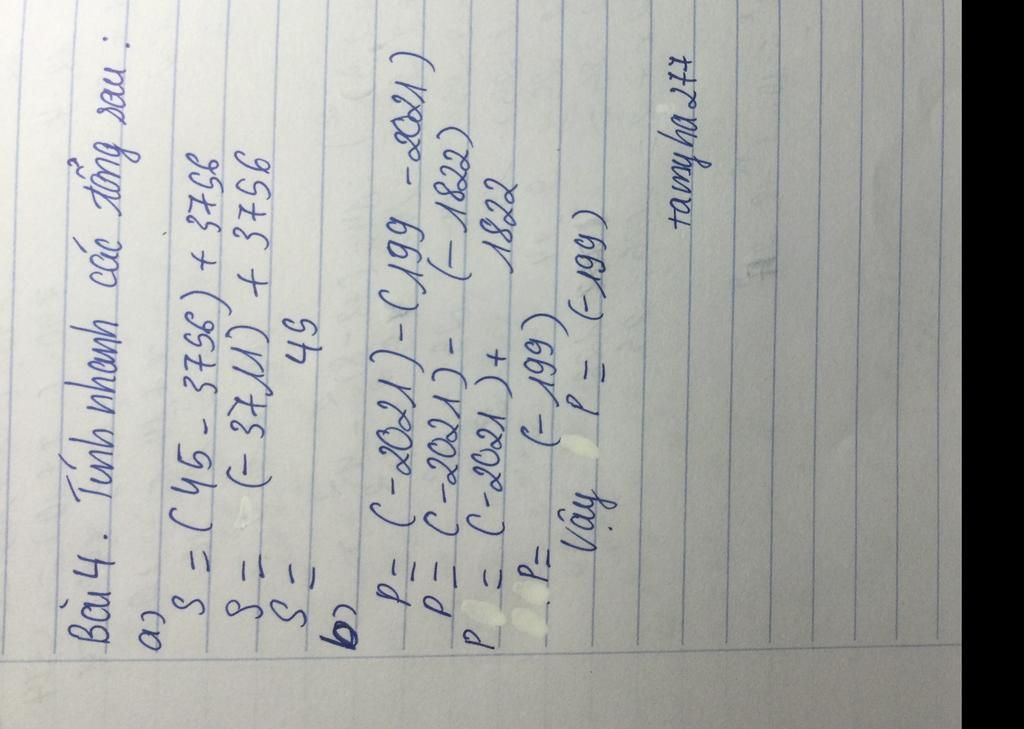 Bài 4. Tính nhanh các tổng sau:
a)
S = (45 - 3756) + 3756
S = (-3711) + 3756
S = 45
b)
P = (-2021) - (199 - 2021)
P = (-2021) - (-1822)
P = (-2021) + 1822
P = (-199)
Vậy P = (-199)
tamyha277